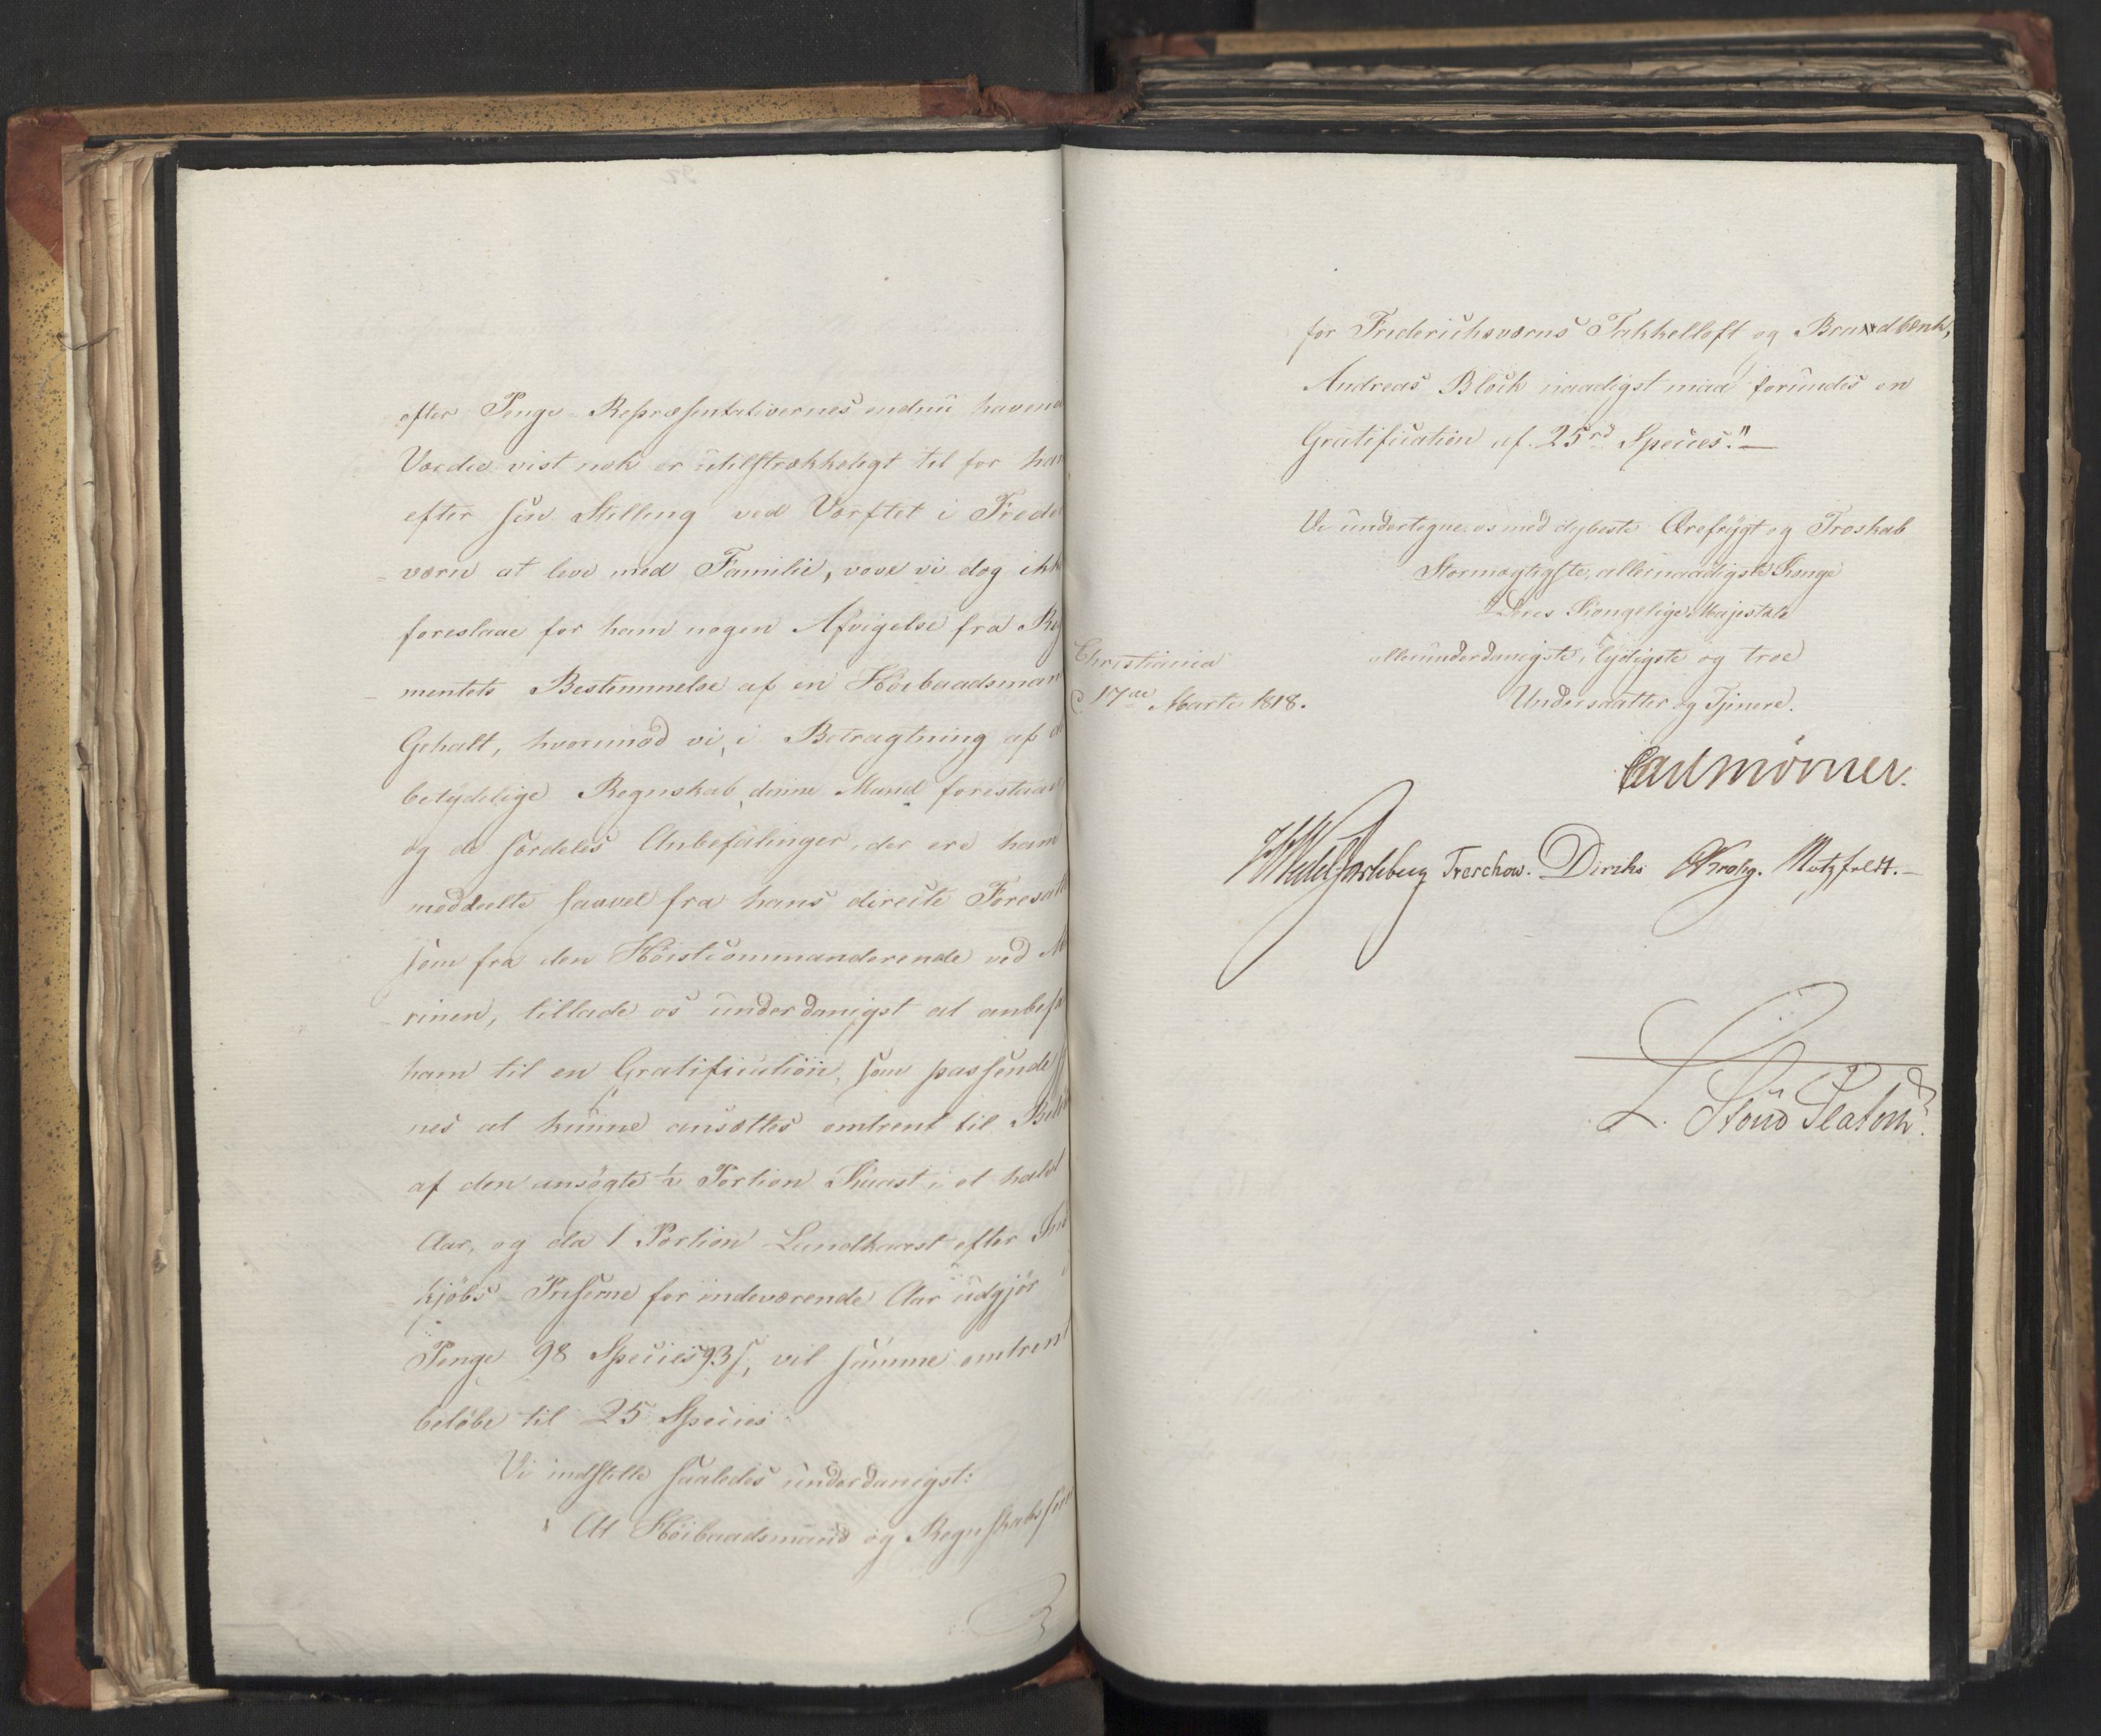 efter Penge-Repræsentativernes endnu havend
Værdie vist nok er utilstrækkeligt til for ham
efter sin Stilling ved Værftet i Frede
værn at leve med Familie, vove vi dog ikk
foreslaae for ham nogen Afvigelse fra Reg
mentets Bestemmelse af en Høibaadsman
Gehalt, hvorimod vi, i Betragtning af d
betydelige Regnskab, denne Mand forestaae
og de særdeles Anbefalinger, der ere ham
meddeelte saavel fra hans directe Foresat
som fra den Høistcommanderende ved Ma
rinen, tillade os underdanigst at anbefa
ham til en Gratification, som passende sy
nes at kunne ansættes omtrent til Belø
af den ansøgte ½ Portion Kaast i et halvt
Aar, og da 1 Portion Landkaast efter Ind
kjøbs-Priserne for indeværende Aar udgjør i
Penge 98 Species 93 s, vil Summe omtrent
beløbe til 25 Species.
Vi indstille saaledes underdanigst:
"At Høibaadsmand og Regnskabsfører
for Frederichsværns Takkelloft og Brandbænk,
Andreas Block naadigst maa forundes en
Gratification af 25rd Species."
Vi undertegne os med dybeste Ærefrygt og Troskab
Stormægtigste, allernaadigste Konge
Deres Kongelige Majestæts
allerunderdanigste, lydigste og troe
Christiania
d. 17de Marts 1818.
Undersaatter og Tjenere.
Carl Mörner.
HWedel Jarlsberg Treschow. Diriks Krohg. Motzfeldt.
L. Stoud Platou.